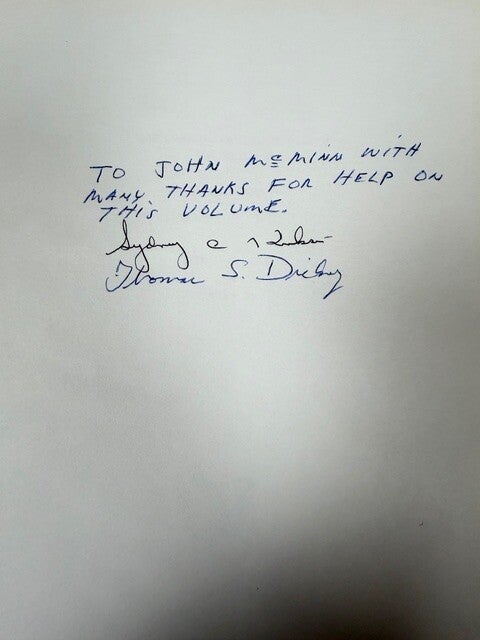 TO JOHN McMINN WITH
MANY THANKS FOR HELP ON
THIS VOLUME.
Sydney C
Thomas S. Dickey